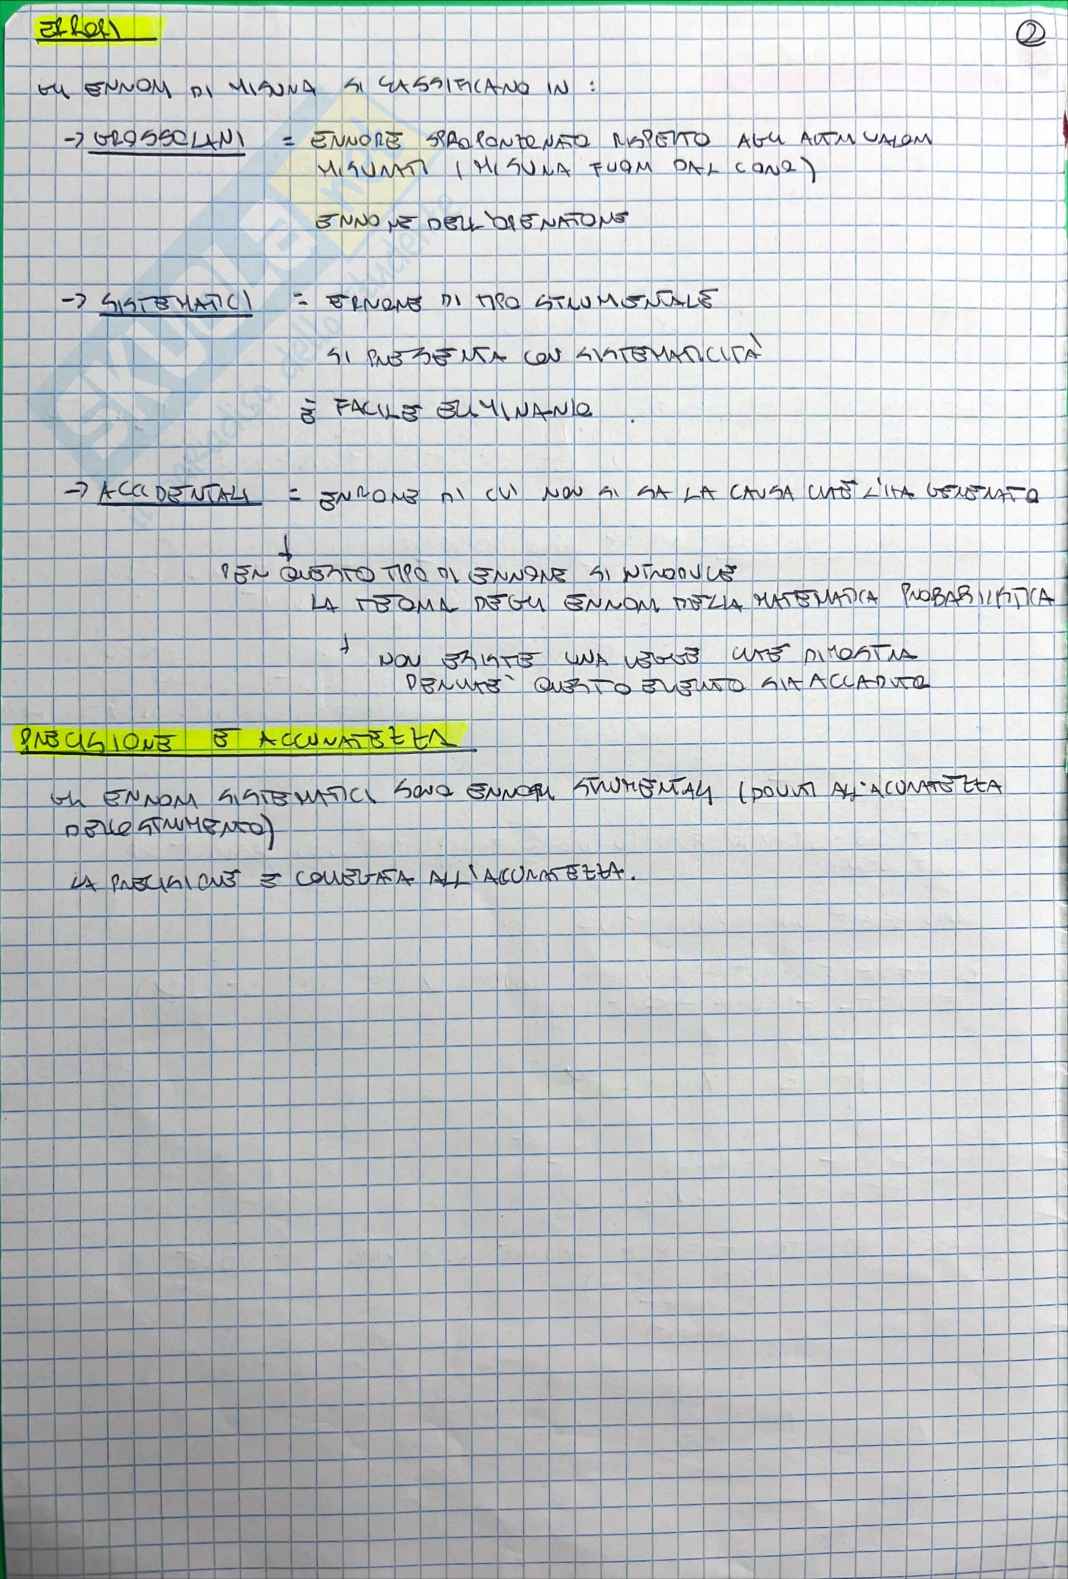 ERRORI
2
GLI ERRORI DI MISURA SI CLASSIFICANO IN :
→ GROSSOLANI = ERRORE SPROPORZIONATO RISPETTO AGLI ALTRI VALORI
MISURATI ( MISURA FUORI DAL CORO)
ERRORE DELL'OPERATORE
→ SISTEMATICI = ERRORE DI TIPO STRUMENTALE
SI PRESENTA CON SISTEMATICITÀ
È FACILE ELIMINARLO.
→ ACCIDENTALI = ERRORE DI CUI NON SI SA LA CAUSA CHE L'HA GENERATO
PER QUESTO TIPO DI ERRORE SI INTRODUCE
LA TEORIA DEGLI ERRORI DELLA MATEMATICA PROBABILISTICA
NON ESISTE UNA LEGGE CHE DIMOSTRA
PERCHÈ QUESTO EVENTO SIA ACCADUTO
PRECISIONE E ACCURATEZZA
GLI ERRORI SISTEMATICI SONO ERRORI STRUMENTALI (DOVUTI ALL'ACURATEZZA
DELLO STRUMENTO)
LA PRECISIONE È COLLEGATA ALL'ACCURATEZZA.
SKUOLA.net